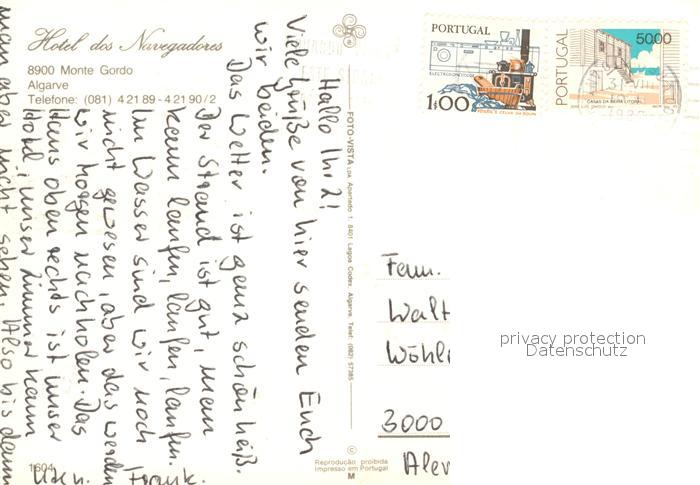 Hotel dos Navegadores
8900 Monte Gordo
Algarve
Telefone: (081) 4 21 89 - 4 21 90 / 2
Hallo Ihr 2!
Viele Grüße von hier senden Euch
wir beiden.
Das Wetter ist ganz schön heiß.
Der Strand ist gut, man
kann laufen, laufen, laufen.
Im Wasser sind wir noch
nicht gewesen, aber das werden
wir morgen nachholen. Das
Haus oben rechts ist unser
Hotel, unser Zimmer kann
man aber nicht sehen. Also bis dann
Frank.
1604
FOTO-VISTA LDA. Apartado 1, 8401 Lagoa Codex, Algarve. Telef: (082) 57365
©
Reprodução proibida
Impresso em Portugal
M
PORTUGAL
1$00
PORTUGAL
50$00
CASAS DA BEIRA LITORAL
Fam.
Walt
Wöhl
3000
privacy protection
Datenschutz